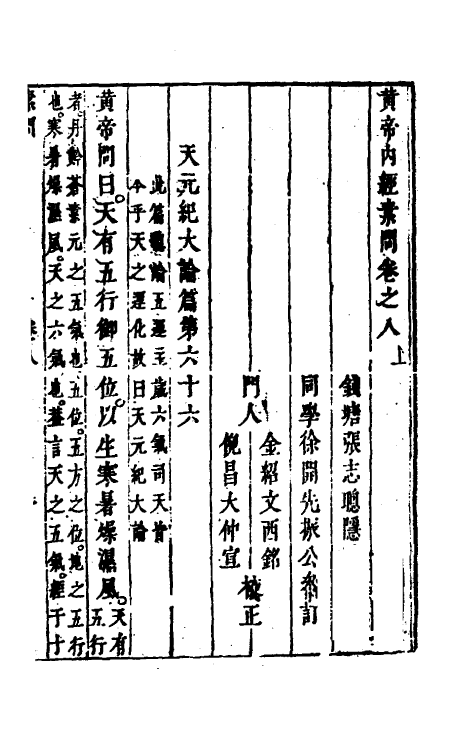 黄帝内經素問卷之八上
錢塘張志聰隱
同學徐開先振公叅訂
門人
金紹文西銘
倪昌大仲宣
校正
天元紀大論篇第六十六
此篇總論五運主歲六氣司天皆
本乎天之運化故曰天元紀大論
黄帝問曰天有五行御五位以生寒暑燥濕風
天有
五行
者丹黅蒼素元之五氣也五位五方之位地之五行
也寒暑燥濕風天之六氣也蓋言天之五氣經于十
素問
卷八